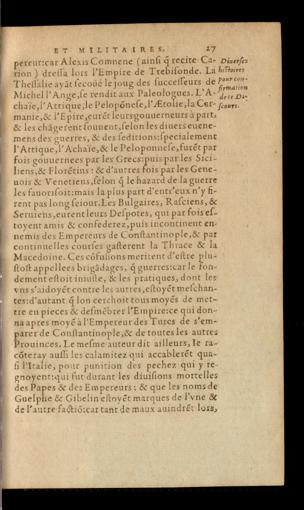 ET MILITAIRES. 27
pereur: car Alexis Comnene (ainsi q̃ recite Ca-
rion) dressa lors l'Empire de Trebisonde. La
Thessalie ayāt secoué le joug des successeurs de
Michel l'Ange, se rendit aux Paleologues. L'A-
chaïe, l'Attique, le Pelopōnese, l'Ætolie, la Cer-
manie, & l'Epire, eurēt leurs gouuerneurs à part,
& les chāgerent souuent, selon les diuers euene-
mens des guerres, & des seditions: specialement
l'Attique, l'Achaïe, & le Peloponnese, furēt par
fois gouuernees par les Grecs: puis par les Sici-
liens, & Florētins: & d'autres fois par les Gene-
uois & Venetiens, selon q̃ le hazard de la guerre
les fauorisoit: mais la plus part d'entr'eux n'y fi-
rent pas long sejour. Les Bulgaires, Rasciens, &
Seruiens, eurent leurs Despotes, qui par fois es-
toyent amis & confederez, puis incontinent en-
nemis des Empereurs de Constantinople, & par
continuelles courses gasterent la Thrace & la
Macedoine. Ces cōfusions meritent d'estre plu-
stost appellees brigādages, q̃ guerres: car le fon-
dement estoit iniuste, & les pratiques, dont les
vns s'aidoyēt contre les autres, estoyēt meschan-
tes: d'autant q̃ lon cerchoit tous moyēs de met-
tre en pieces & desmēbrer l'Empire: ce qui don-
na apres moyē à l'Empereur des Turcs de s'em-
parer de Constantinople, & de toutes les autres
Prouinces. Le mesme auteur dit ailleurs, le ra-
cōteray aussi les calamitez qui accablerēt qua-
si l'Italie, pour punition des pechez qui y re-
gnoyent: qui fut durant les diuisions mortelles
des Papes & des Empereurs: & que les noms de
Guelphe & Gibelin estoyēt marques de l'vne &
de l'autre factiō: car tant de maux auindrēt lors,
Diuerses
histoires
pour con-
firmation
de ce Di-
scours.